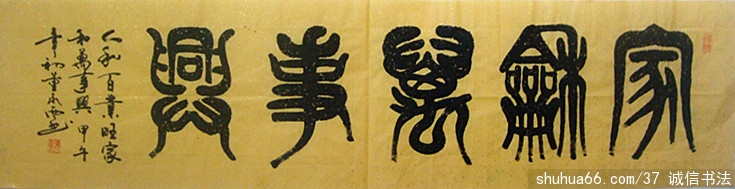 家龢萬事興
仁和百業旺家
和萬事興 甲午
年初董
shuhua66.com/37 诚信书法